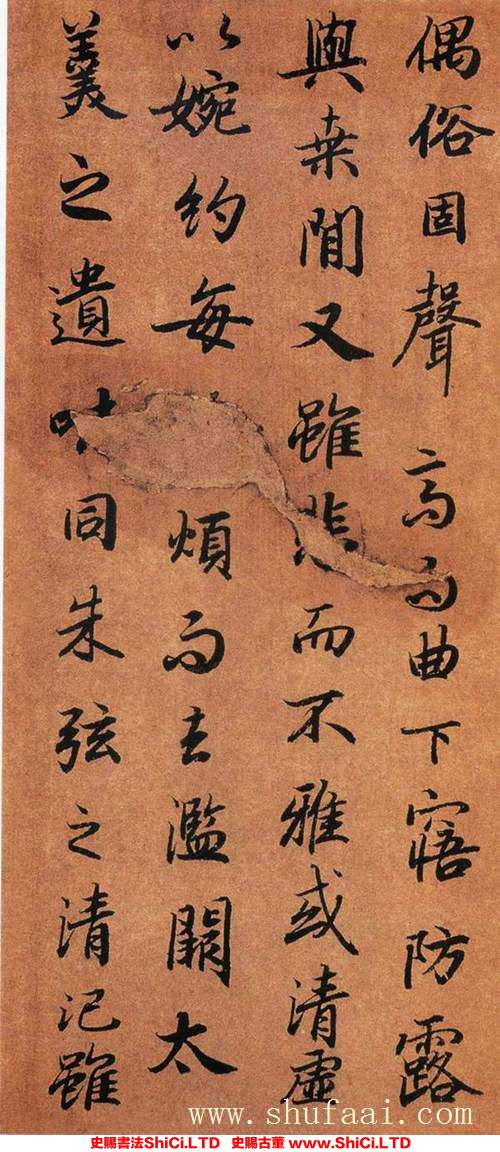 偶俗固聲高而曲下寤防露
與桒閒又雖悲而不雅或清虛
以婉約每煩而去濫闕太
羹之遺味同朱弦之清汜雖
www.shufaai.com
史賜書法ShiCi.LTD 史賜古董 www.ShiCi.LTD